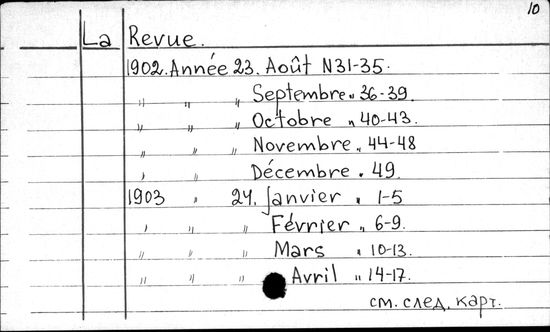 10
La Revue.
1902. Année 23. Août N31-35.
" " " Septembre " 36-39.
" " " Octobre " 40-43.
" " " Novembre " 44-48
" " Décembre " 49.
1903 " 24. Janvier " 1-5
" " " Février " 6-9.
" " " Mars " 10-13.
" " " Avril " 14-17.
см. след. карт.